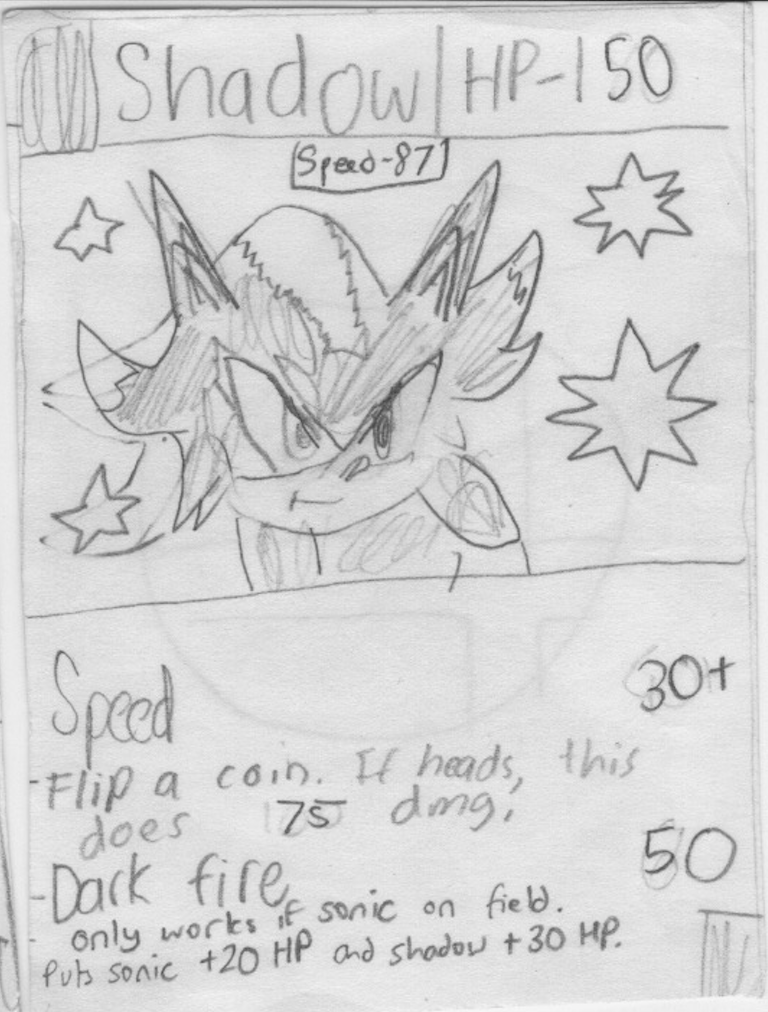 Shadow HP-150
Speed-87
Speed 30+
-Flip a coin. If heads, this
does 75 dmg.
-Dark fire 50
only works if sonic on field.
Puts sonic +20 HP and shadow +30 HP.